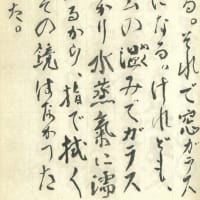 る。それで窓ガラス
になる。けれども、
ムの温みでガラス
かり水蒸氣に濡
るから、指で拭く
その鏡はなかった
た。